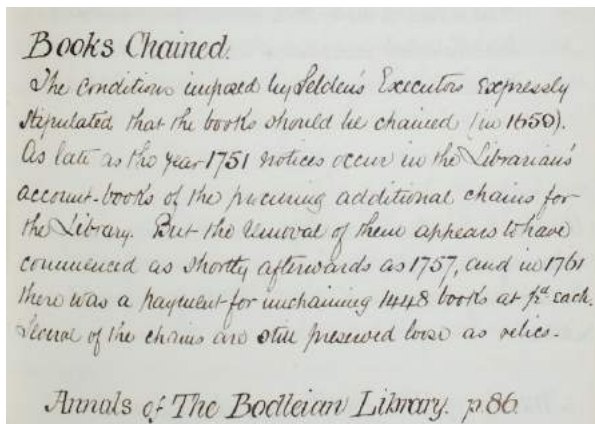 Books Chained.
The conditions imposed by Selden's Executors expressly
stipulated that the books should be chained (in 1659).
As late as the year 1751 notices occur in the Librarian's
account-books of the procuring additional chains for
the Library. But the removal of them appears to have
commenced as shortly afterwards as 1757, and in 1761
there was a payment for unchaining 1448 books at ½d each.
Several of the chains are still preserved loose as relics.
Annals of The Bodleian Library. p.86